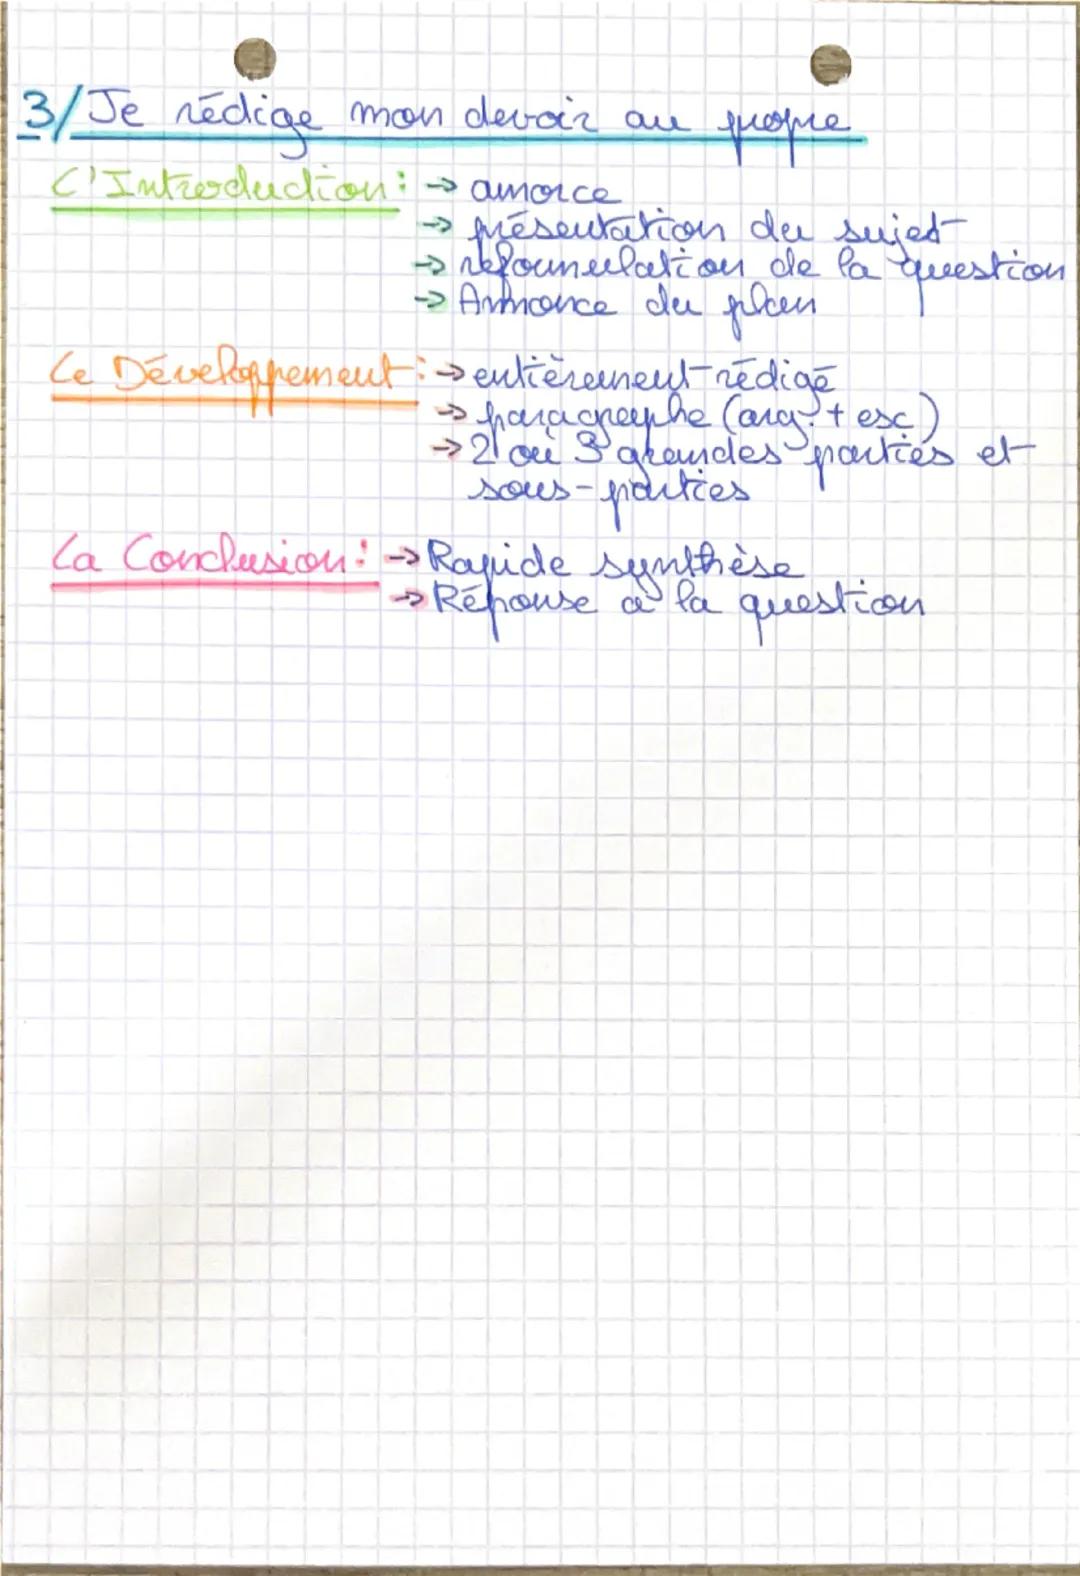 3/ Je rédige mon devoir au propre
L'Introduction: → amorce
→ présentation du sujet
→ reformulation de la question
→ Annonce du plan
Le Développement: → entièrement rédigé
→ paragraphe (arg. + ex)
→ 2 ou 3 grandes parties et
sous-parties
La Conclusion: → Rapide synthèse
→ Réponse à la question